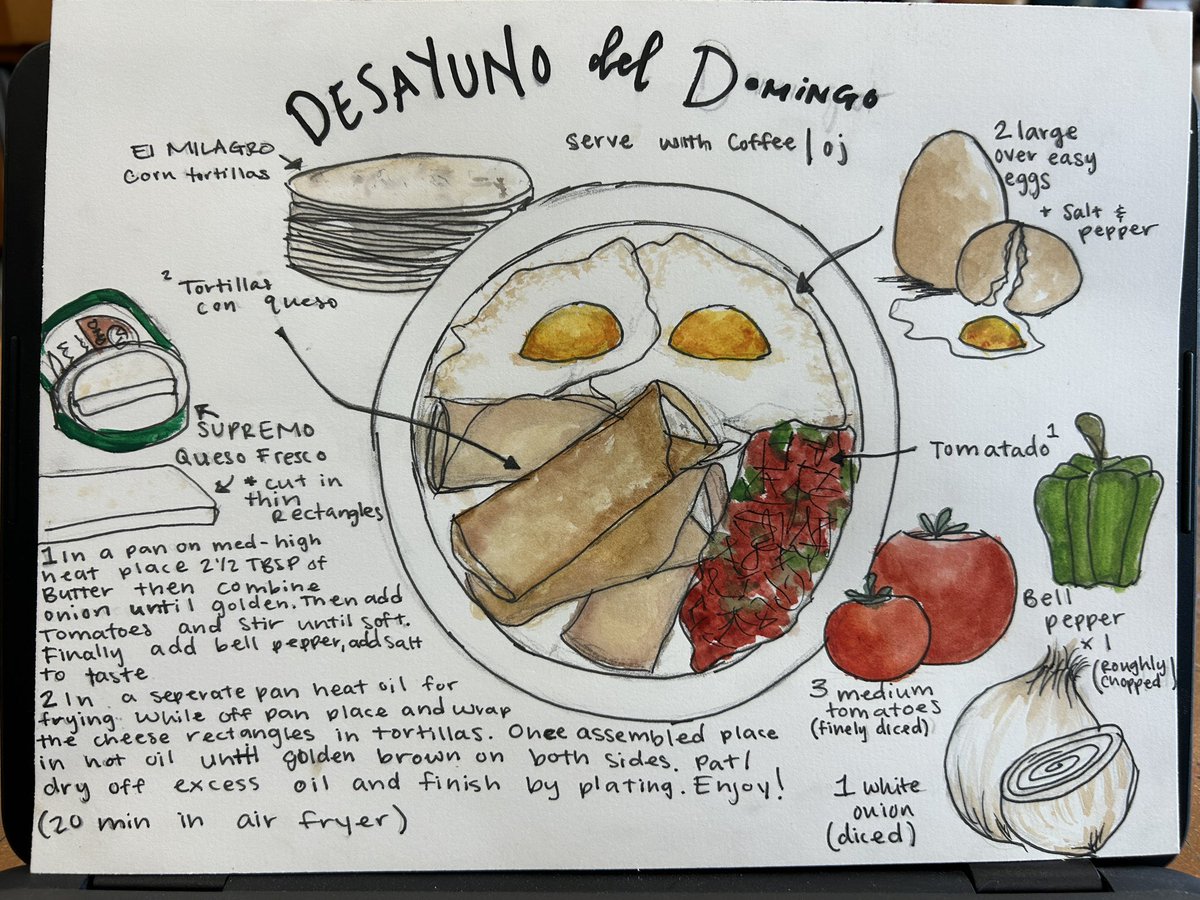 DESAYUNO del DOMINGO
serve with coffee/oj
El MILAGRO
corn tortillas
2 large
over easy
eggs
+ salt &
pepper
2 Tortillas
con queso
SUPREMO
Queso Fresco
* cut in
thin
Rectangles
Tomatado 1
Bell
pepper
x 1
(Roughly
chopped)
3 medium
tomatoes
(finely diced)
1 white
onion
(diced)
1 In a pan on med-high
heat place 2 1/2 TBSP of
Butter then combine
onion until golden. Then add
Tomatoes and stir until soft.
Finally add bell pepper, add salt
to taste
2 In a seperate pan heat oil for
frying. While off pan place and wrap
the cheese rectangles in tortillas. Once assembled place
in hot oil until golden brown on both sides. Pat/
dry off excess oil and finish by plating. Enjoy!
(20 min in air fryer)